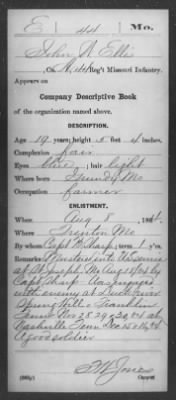 E 44 Mo.
John N Ellis
, Co. H, 44 Reg't Missouri Infantry.
Appears on
Company Descriptive Book
of the organization named above.
DESCRIPTION.
Age 19 years; height 5 feet 4 inches.
Complexion fair
Eyes blue; hair light
Where born Grundy Mo
Occupation farmer
ENLISTMENT.
When Aug 8, 1864.
Where Trenton Mo
By whom Capt Sharp; term 1 y'rs.
Remarks: Mustered into US service
at St Joseph Mo Aug 64 by
Capt Sharp Was engaged
with enemy at
Spring Hill & Franklin
Tenn Nov 28 29 & 30 64 at
Nashville Tenn Dec 15 & 16 64
A good soldier
Jones
Copyist.